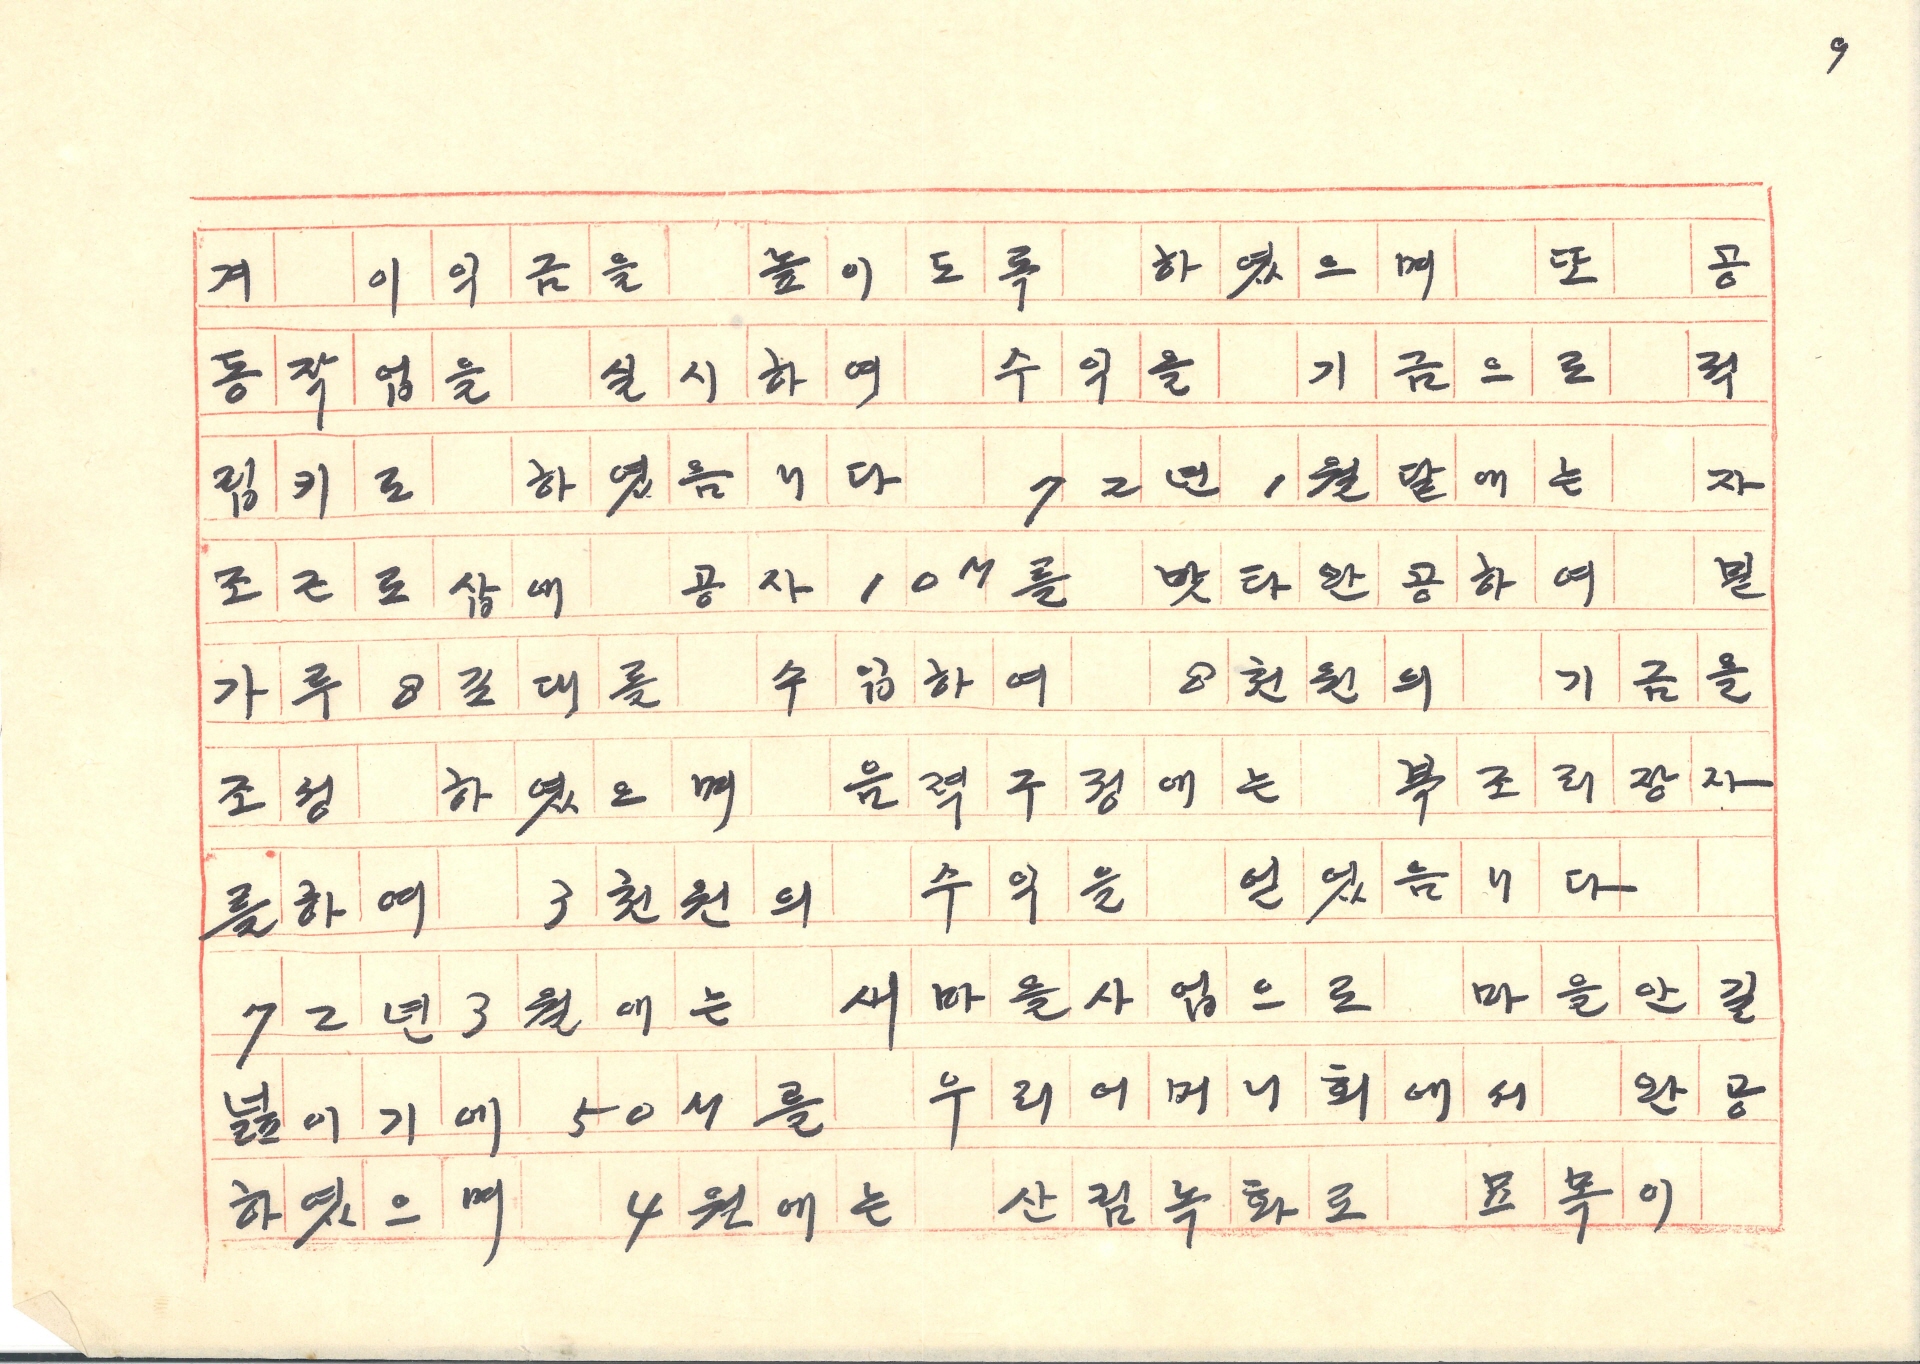 9
겨 이익금을 높이도록 하였으며 또 공
동작업을 실시하여 수익을 기금으로 적
립키로 하였음니다 72년 1월달에는 자
조근로삽에 공사 10M를 맛타완공하여 밀
가루 8길대를 수입하여 8천원의 기금을
조성 하였으며 음력구정에는 복조리장사
를하여 3천원의 수익을 얻었음니다
72년 3월에는 새마을사업으로 마을안길
넓이기에 50M를 우리어머니회에서 완공
하였으며 4월에는 산림녹화로 묘목이